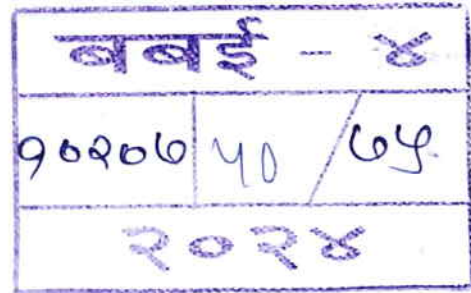 बबई - ४
१०२०७ ५० / ७५
२०२४